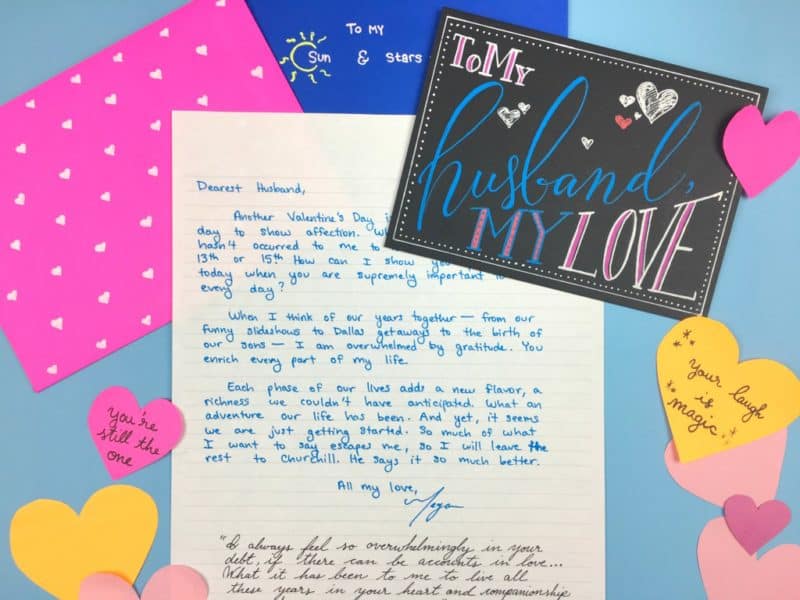 To MY
Sun & Stars
To My
husband,
MY LOVE
Dearest Husband,
Another Valentine's Day
day to show affection.
hasn't occurred to me to
13th or 15th How can I show
today when you are supremely important
every day?
When I think of our years together — from our
funny slideshows to Dallas getaways to the birth of
our sons — I am overwhelmed by gratitude. You
enrich every part of my life.
Each phase of our lives adds a new flavor, a
richness we couldn't have anticipated. What an
adventure our life has been. And yet, it seems
we are just getting started. So much of what
I want to say escapes me, so I will leave the
rest to Churchill. He says it so much better.
All my love,
"I always feel so overwhelmingly in your
debt, if there can be accounts in love...
What it has been to me to live all
these years in your heart and companionship
You're
still the
one
Your laugh
is
magic